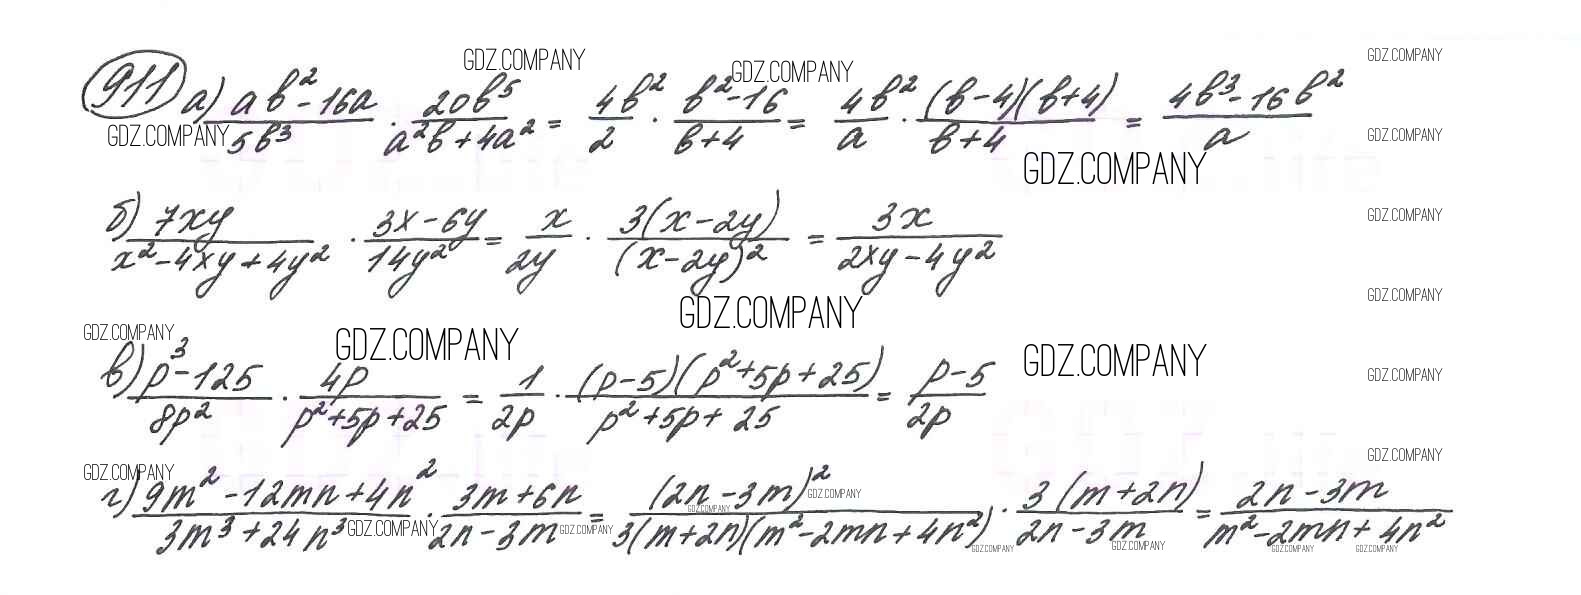 GDZ.COMPANY GDZ.COMPANY GDZ.COMPANY
911 а) (ab² - 16a)/(5b³) · (20b⁵)/(a²b + 4a²) = (4b²)/2 · (b² - 16)/(b + 4) = (4b²)/a · ((b - 4)(b + 4))/(b + 4) = (4b³ - 16b²)/a
GDZ.COMPANY GDZ.COMPANY
GDZ.COMPANY
б) (7xy)/(x² - 4xy + 4y²) · (3x - 6y)/(14y²) = x/(2y) · (3(x - 2y))/((x - 2y)²) = (3x)/(2xy - 4y²)
GDZ.COMPANY
GDZ.COMPANY GDZ.COMPANY
GDZ.COMPANY GDZ.COMPANY GDZ.COMPANY
в) (p³ - 125)/(8p²) · (4p)/(p² + 5p + 25) = 1/(2p) · ((p - 5)(p² + 5p + 25))/(p² + 5p + 25) = (p - 5)/(2p)
GDZ.COMPANY
GDZ.COMPANY GDZ.COMPANY
г) (9m² - 12mn + 4n²)/(3m³ + 24n³) · (3m + 6n)/(2n - 3m) = ((2n - 3m)²)/(3(m + 2n)(m² - 2mn + 4n²)) · (3(m + 2n))/(2n - 3m) = (2n - 3m)/(m² - 2mn + 4n²)
GDZ.COMPANY GDZ.COMPANY
GDZ.COMPANY GDZ.COMPANY
GDZ.COMPANY GDZ.COMPANY GDZ.COMPANY GDZ.COMPANY